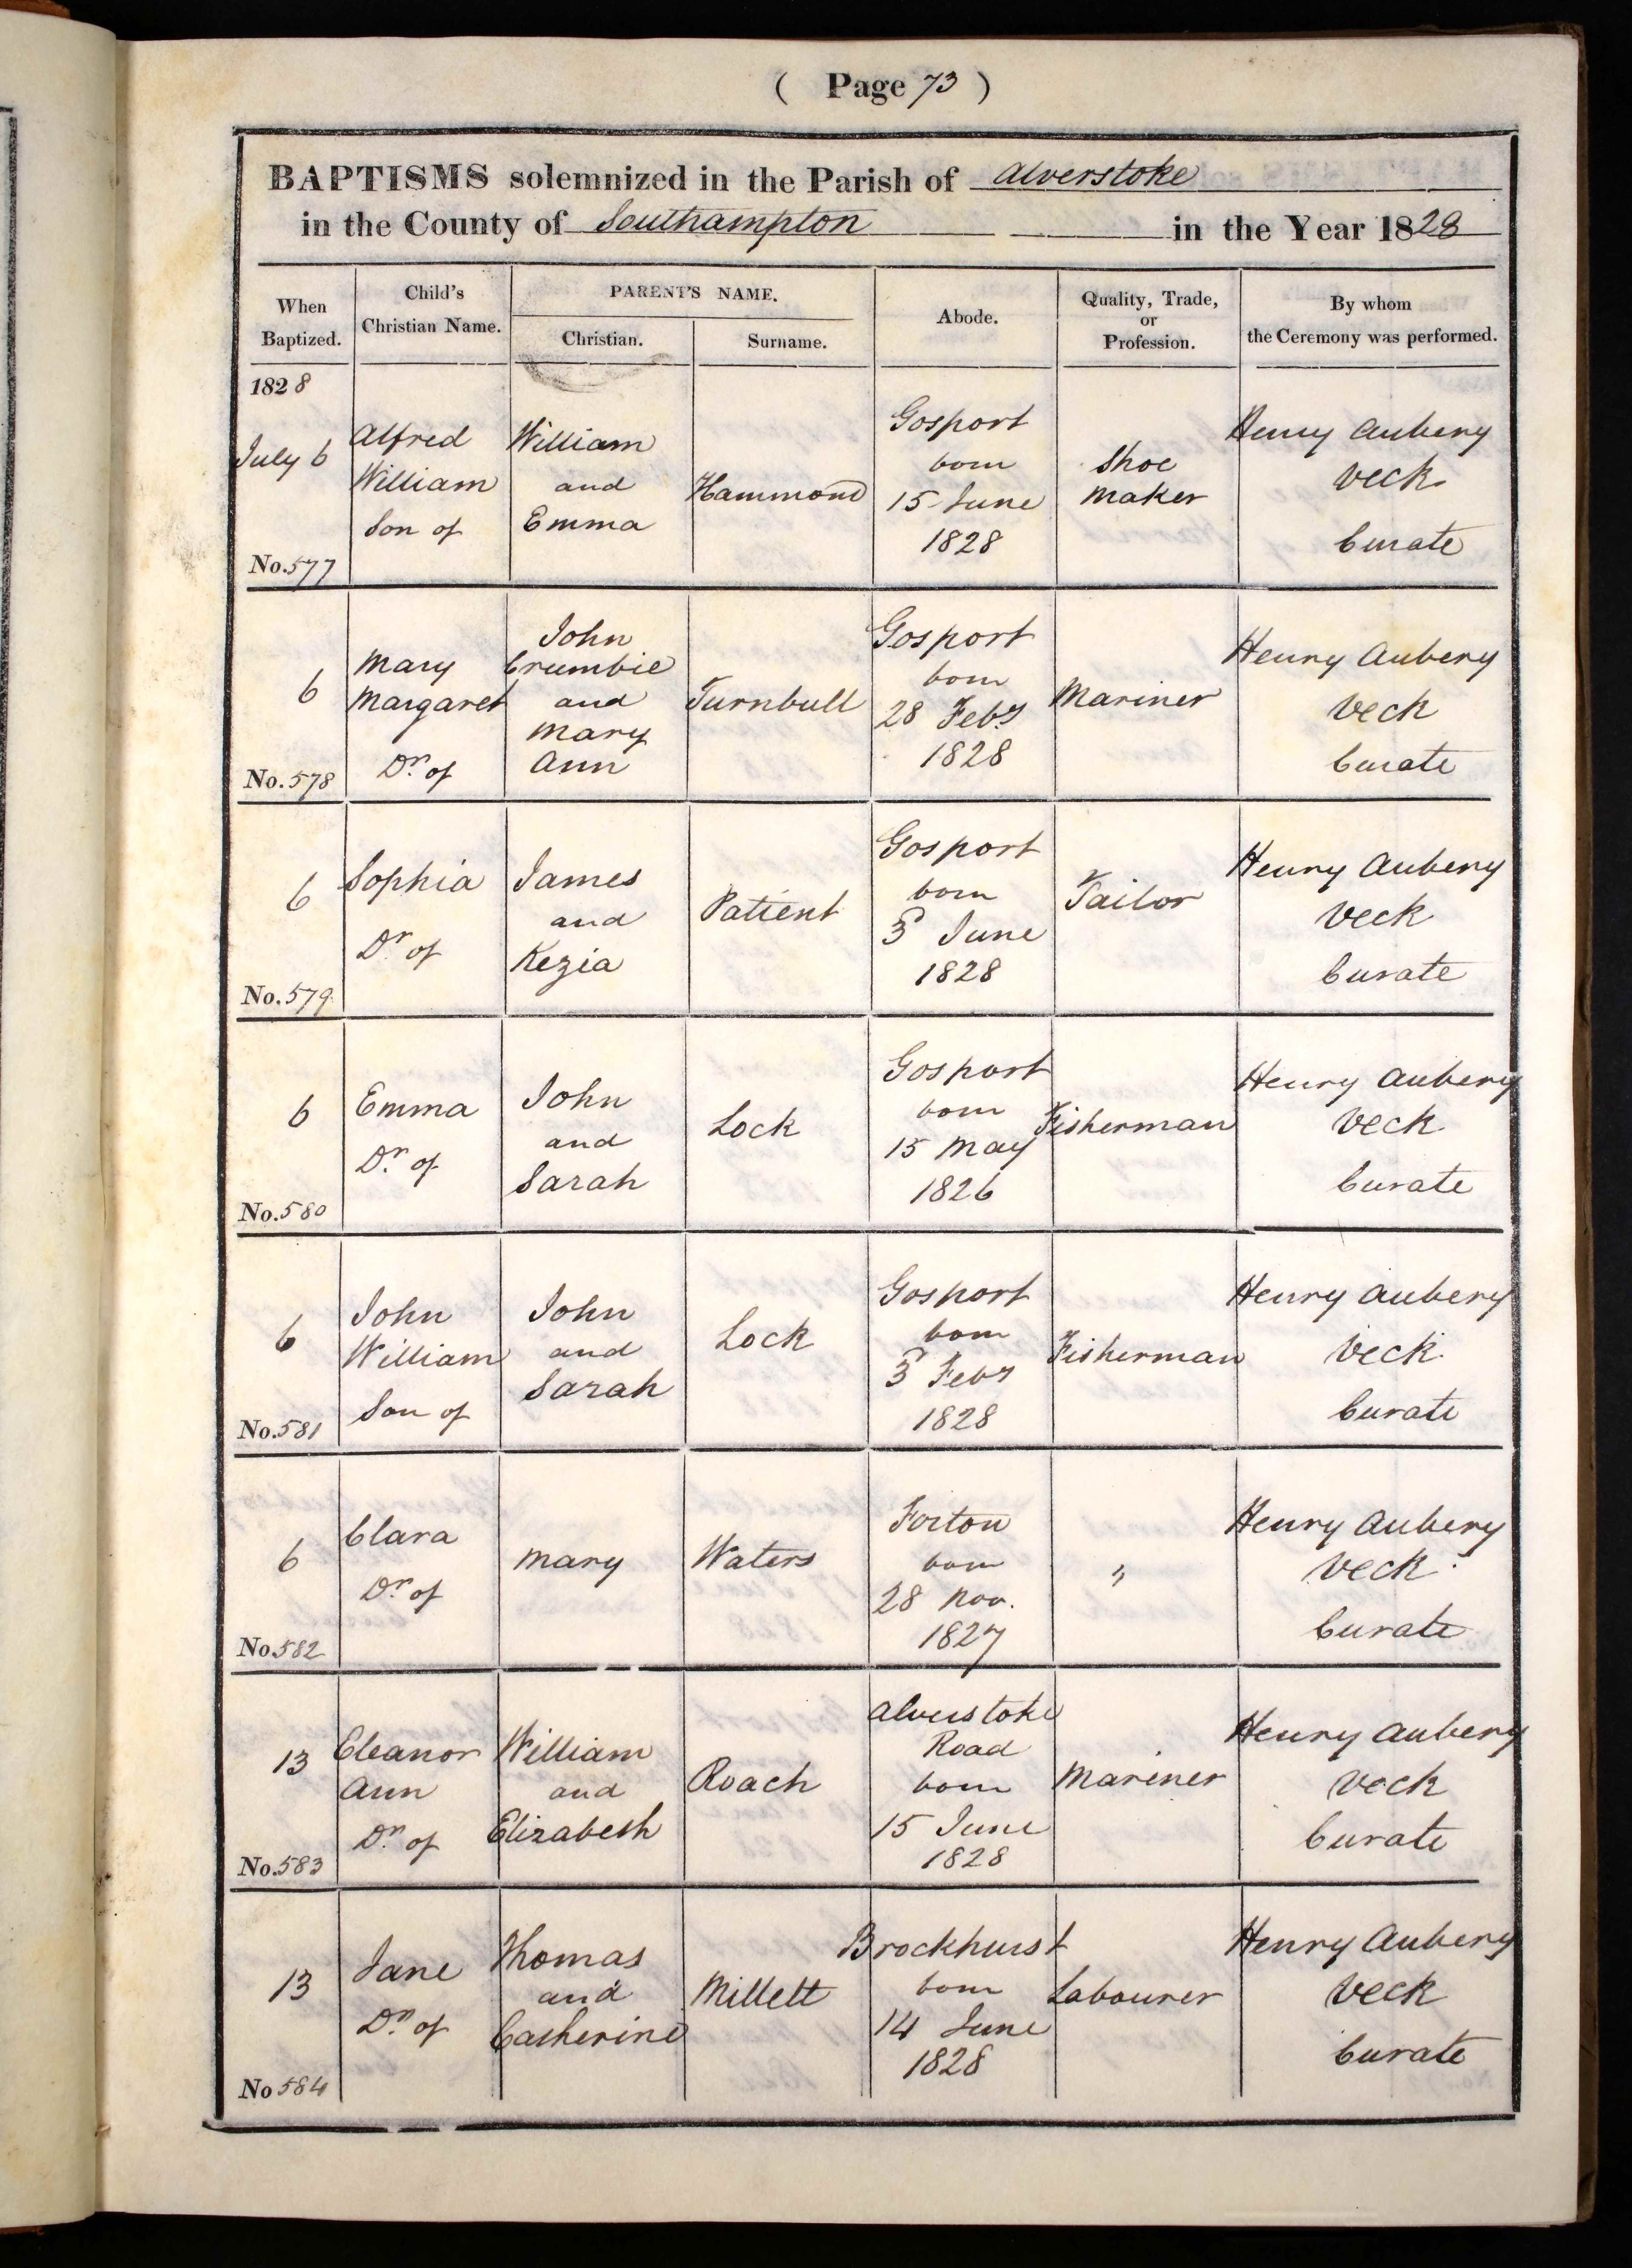 ( Page 73 )
BAPTISMS solemnized in the Parish of Alverstoke
in the County of Southampton in the Year 1828
When Baptized.
Child's Christian Name.
PARENT'S NAME.
Christian.
Surname.
Abode.
Quality, Trade, or Profession.
By whom the Ceremony was performed.
1828
July 6
No. 577
Alfred
William
Son of
William
and
Emma
Hammond
Gosport
born
15 June
1828
Shoe
maker
Henry Aubery
Veck
Curate
6
No. 578
Mary
Margaret
Dr. of
John
Crumbie
and
Mary
Ann
Turnbull
Gosport
born
28 Feby
1828
Mariner
Henry Aubery
Veck
Curate
6
No. 579
Sophia
Dr. of
James
and
Kezia
Patient
Gosport
born
3 June
1828
Tailor
Henry Aubery
Veck
Curate
6
No. 580
Emma
Dr. of
John
and
Sarah
Lock
Gosport
born
15 May
1826
Fisherman
Henry Aubery
Veck
Curate
6
No. 581
John
William
Son of
John
and
Sarah
Lock
Gosport
born
3 Feby
1828
Fisherman
Henry Aubery
Veck
Curate
6
No 582
Clara
Dr. of
Mary
Waters
Forton
born
28 Nov.
1827
"
Henry Aubery
Veck
Curate
13
No. 583
Eleanor
Ann
Dr. of
William
and
Elizabeth
Roach
Alverstoke
Road
born
15 June
1828
Mariner
Henry Aubery
Veck
Curate
13
No 584
Jane
Dr. of
Thomas
and
Catherine
Millett
Brockhurst
born
14 June
1828
Labourer
Henry Aubery
Veck
Curate